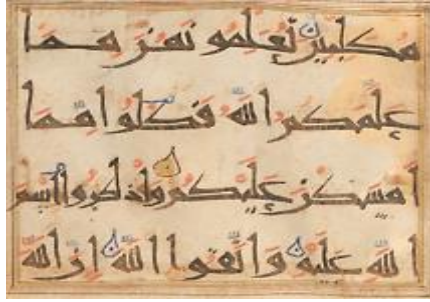 مكلبين تعلمونهن مما
علمكم الله فكلوا مما
أمسكن عليكم واذكروا اسم
الله عليه واتقوا الله ان الله